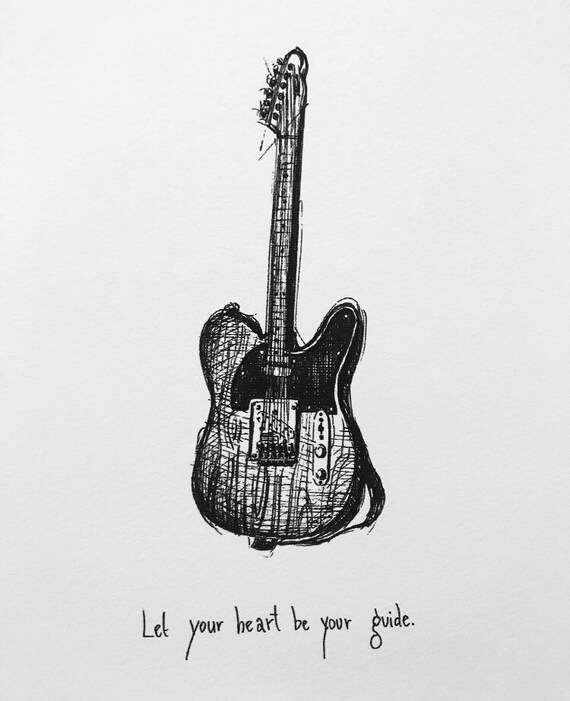 Let your heart be your guide.